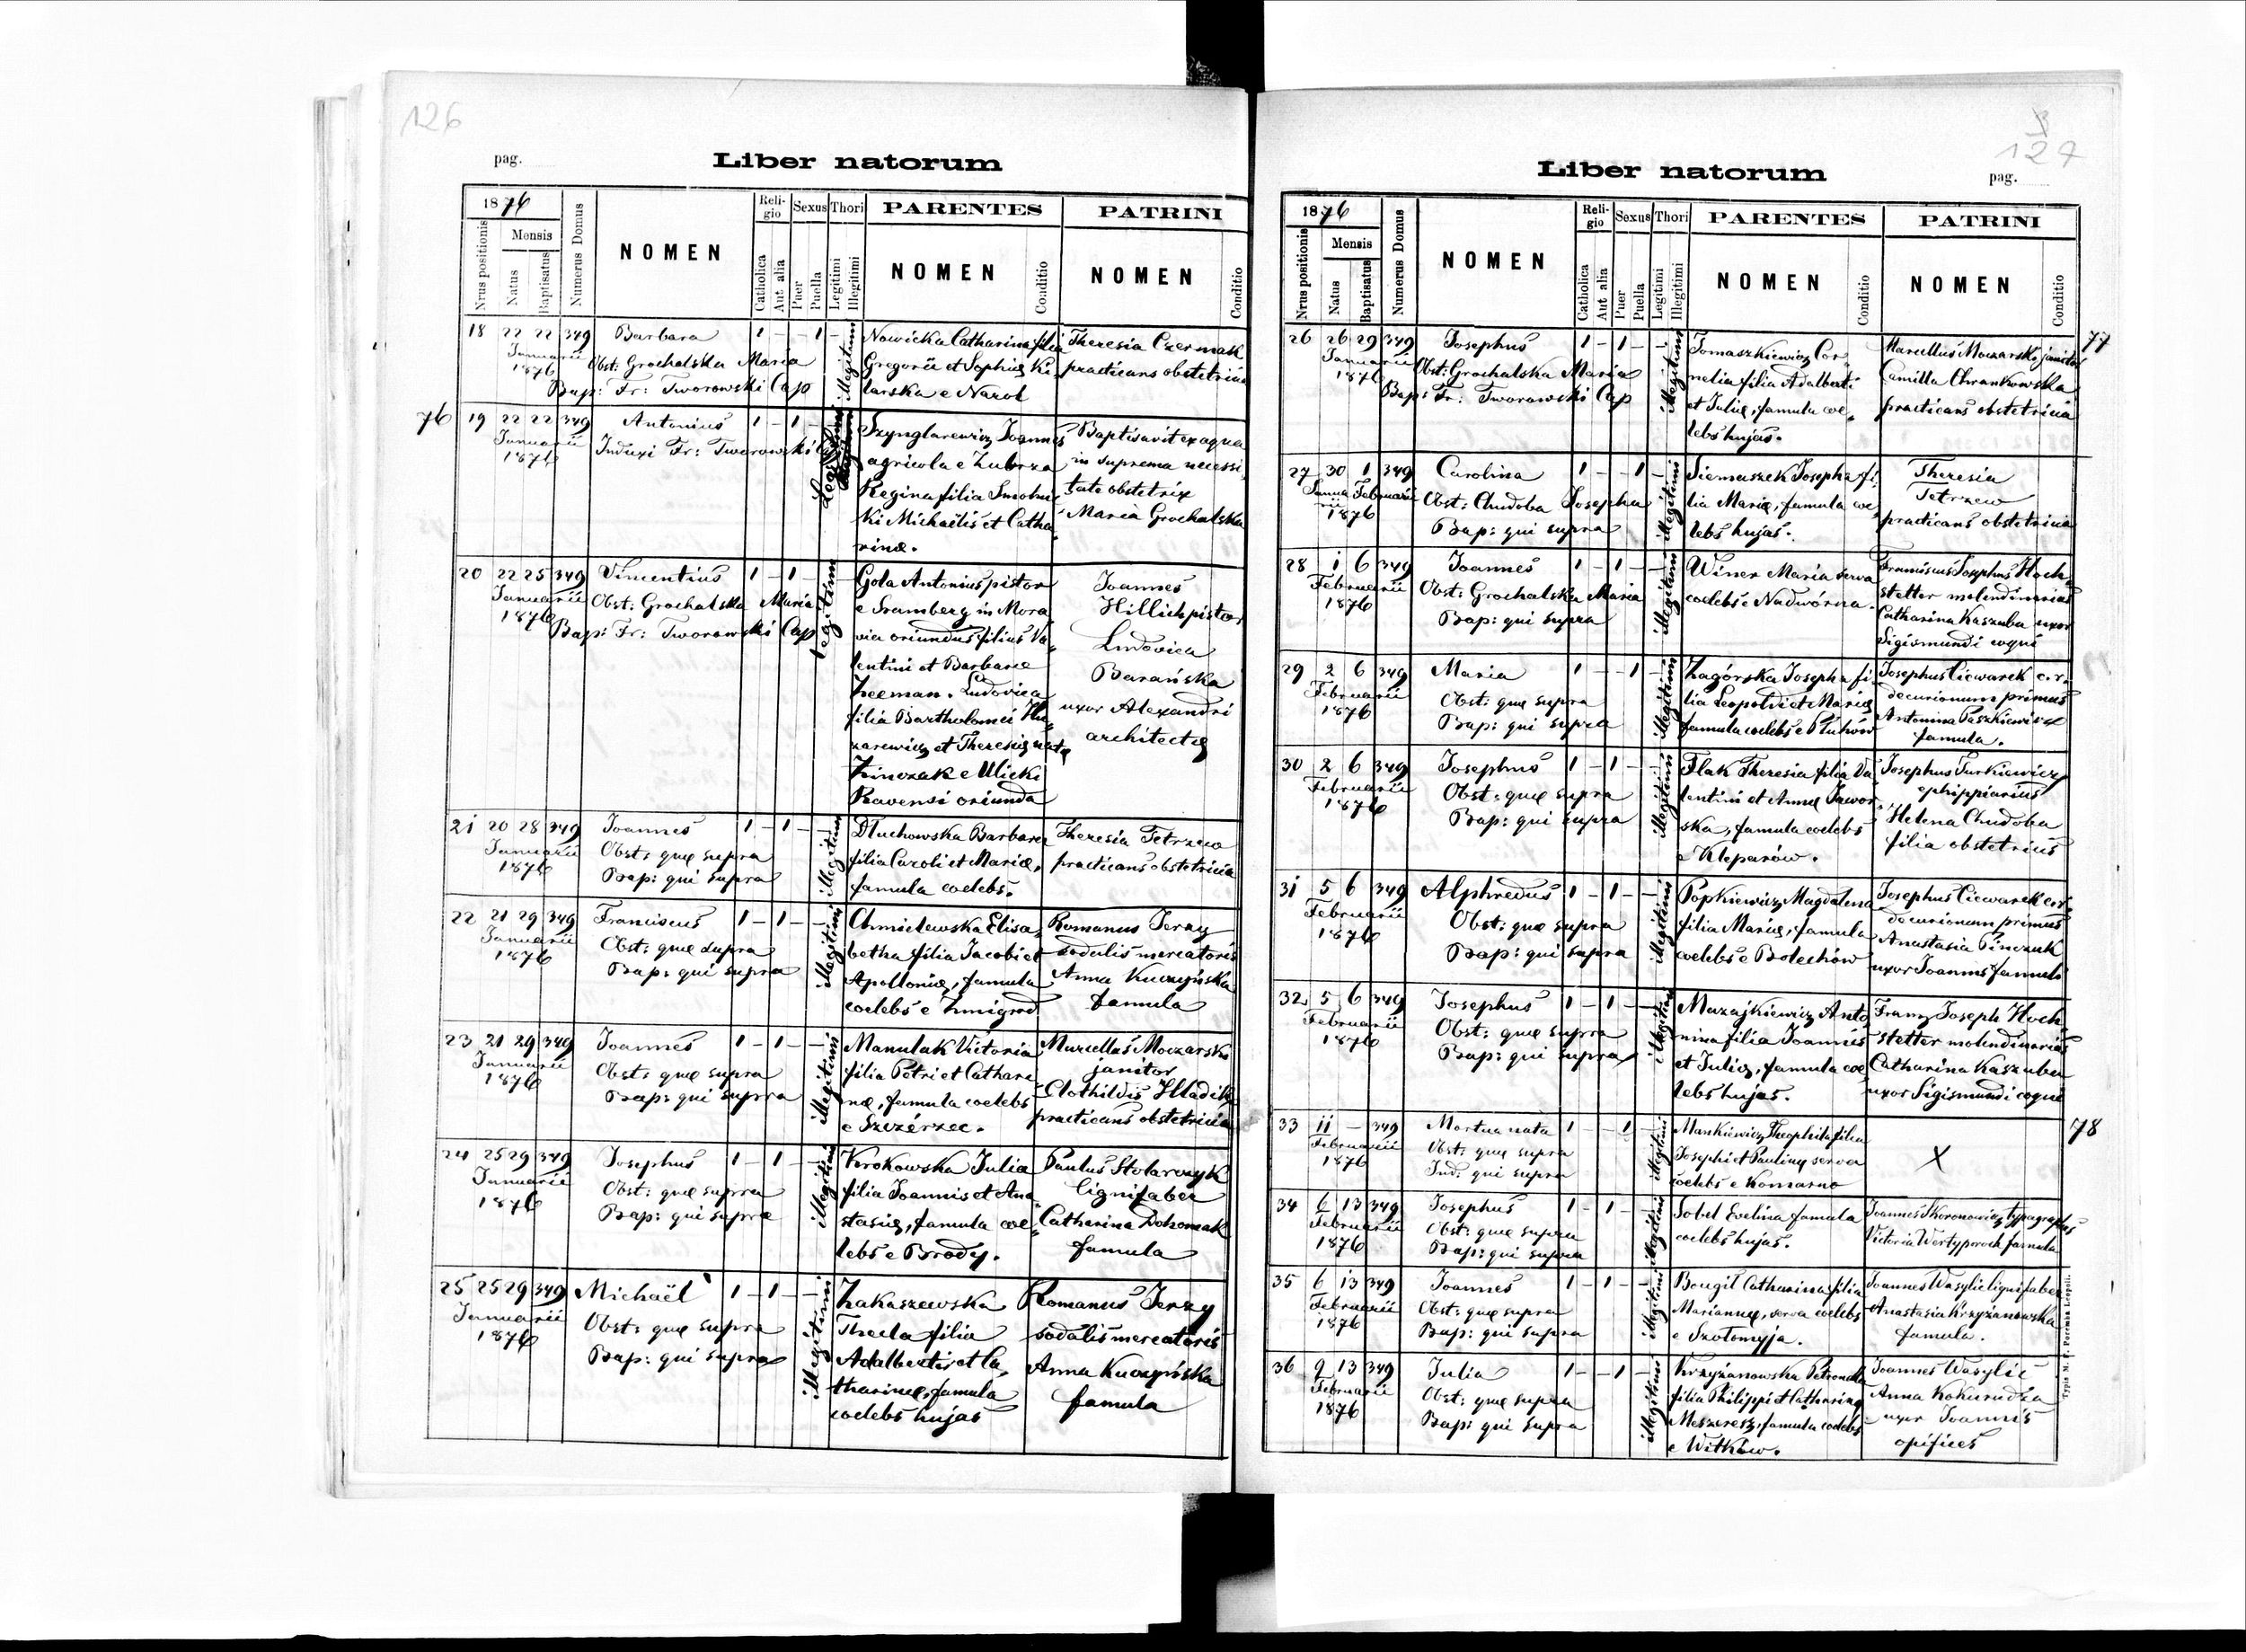 126
pag.
Liber natorum
1876
Nrus positionis
Mensis
Natus
Baptisatus
Numerus Domus
NOMEN
Religio
Catholica
Aut alia
Sexus
Puer
Puella
Thori
Legitimi
Illegitimi
PARENTES
NOMEN
Conditio
PATRINI
NOMEN
Conditio
18 22 22 349 Barbara 1 - - 1 -
Januarii
1876
Obst: Grochalska Maria
Bap: Fr: Tworowski Cap
illegitimi
Nowicka Catharina filia
Gregorii et Sophiæ Ki
larska e Narol
Theresia Czermak
practicans obstetricia
76
19 22 22 349 Antonius 1 - 1 -
Januarii
1876
Induxi Fr: Tworowski Cap
Legitimi
Szynglarewicz Joannes
agricola e Zubrza
Regina filia Smolni
ki Michaëlis et Catha
rinæ.
Baptisavit ex aqua
in suprema necessi
tate obstetrix
Maria Grochalska
20 22 25 349 Vincentius 1 - 1 -
Januarii
1876
Obst: Grochalska Maria
Bap: Fr: Tworowski Cap
Legitimi
Gola Antonius pistor
e Sramberg in Mora
via oriundus filius Va
lentini et Barbaræ
Zeeman. Ludovica
filia Bartholomei
zarewicz et Theresiæ natæ
e Ulicki
Ravensi oriunda
Joannes
Hillich pistor
Ludovica
Barańska
uxor Alexandri
architectæ
21 20 28 349 Joannes 1 - 1 - -
Januarii
1876
Obst: quæ supra
Bap: qui supra
illegitimi
Dłuchowska Barbara
filia Caroli et Mariæ,
famula coelebs.
Theresia Tetrzew
practicans obstetricia
22 21 29 349 Franciscus 1 - 1 - -
Januarii
1876
Obst: quæ supra
Bap: qui supra
illegitimi
Chmielewska Elisa
betha filia Jacobi et
Apolloniæ, famula
coelebs e Zmigrod
Romanus Jerzy
sodalis mercatoris
Anna Kuczyńska
famula
23 21 29 349 Joannes 1 - 1 - -
Januarii
1876
Obst: quæ supra
Bap: qui supra
illegitimi
Manulak Victoria
filia Petri et Cathari
næ, famula coelebs
e Szczérzec.
Marcellus Moczarski
janitor
Clothildis Hladik
practicans obstetricia
24 25 29 349 Josephus 1 - 1 - -
Januarii
1876
Obst: quæ supra
Bap: qui supra
illegitimi
Krokowska Julia
filia Joannis et Ana
stasiæ, famula coe
lebs e Brody.
Paulus Stolarczyk
lignifaber
Catharina Dohomak
famula
25 25 29 349 Michaël 1 - 1 - -
Januarii
1876
Obst: quæ supra
Bap: qui supra
illegitimi
Zakaszewska
Thecla filia
Adalberti et Ca
tharinæ, famula
coelebs hujas
Romanus Jerzy
sodalis mercatoris
Anna Kuczyńska
famula
127
pag.
Liber natorum
1876
Nrus positionis
Mensis
Natus
Baptisatus
Numerus Domus
NOMEN
Religio
Catholica
Aut alia
Sexus
Puer
Puella
Thori
Legitimi
Illegitimi
PARENTES
NOMEN
Conditio
PATRINI
NOMEN
Conditio
77
26 26 29 349 Josephus 1 - 1 - -
Januarii
1876
Obst: Grochalska Maria
Bap: Fr: Tworowski Cap
illegitimi
Tomaszkiewicz Cor
nelia filia Adalberti
et Juliæ, famula coe
lebs hujas.
Marcellus Moczarski janitor
Camilla Chrankowska
practicans obstetricia
27 30 1 349 Carolina 1 - - 1 -
Januarii Februarii
1876
Obst: Chudoba Josepha
Bap: qui supra
illegitimi
Siemaszek Josepha fi
lia Mariæ, famula coe
lebs hujas.
Theresia
Tetrzew
practicans obstetricia
28 1 6 349 Joannes 1 - 1 - -
Februarii
1876
Obst: Grochalska Maria
Bap: qui supra
illegitimi
Winer Maria serva
coelebs e Nadwórna.
Franciscus Josephus Hoch
stetter molendinarius
Catharina Kaszuba uxor
Sigismundi coqui
29 2 6 349 Maria 1 - - 1 -
Februarii
1876
Obst: quæ supra
Bap: qui supra
illegitimi
Zagórska Josepha fi
lia Leopoldi et Mariæ
famula coelebs e Płuhów
Josephus Ciewarek
decurionum primus
Antonina Paszkiewicz
famula.
30 2 6 349 Josephus 1 - 1 - -
Februarii
1876
Obst: quæ supra
Bap: qui supra
illegitimi
Flak Theresia filia Va
lentini et Annæ Jawor
ska, famula coelebs
e Kleparów.
Josephus Turkiewicz
ephippiarius
Helena Chudoba
filia obstetricis
31 5 6 349 Alphredus 1 - 1 - -
Februarii
1876
Obst: quæ supra
Bap: qui supra
illegitimi
Popkiewicz Magdalena
filia Mariæ, famula
coelebs e Bolechów
Josephus Ciewarek
decurionum primus
Anastasia Pinczuk
uxor Joannis famuli
32 5 6 349 Josephus 1 - 1 - -
Februarii
1876
Obst: quæ supra
Bap: qui supra
illegitimi
Muzajkiewicz Anto
nina filia Joannis
et Juliæ, famula coe
lebs hujas.
Franz Joseph Hoch
stetter molendinarius
Catharina Kaszuba
uxor Sigismundi coqui
78
33 11 - 349 Mortua nata 1 - - 1 -
Februarii
1876
Obst: quæ supra
Ind: qui supra
illegitimi
Mankiewicz Theophila filia
Josephi et Paulinæ serva
coelebs e Komarno
X
34 6 13 349 Josephus 1 - 1 - -
Februarii
1876
Obst: quæ supra
Bap: qui supra
illegitimi
Sobel Evelina famula
coelebs hujas.
Joannes Skoronowicz typographus
Victoria Wertyporoch famula
35 6 13 349 Joannes 1 - 1 - -
Februarii
1876
Obst: quæ supra
Bap: qui supra
illegitimi
Bougil Catharina filia
Mariannæ, serva coelebs
e Szołomyja.
Joannes Wasylic lignifaber
Anastasia Krzyżanowska
famula.
36 9 13 349 Julia 1 - - 1 -
Februarii
1876
Obst: quæ supra
Bap: qui supra
illegitimi
Krzyżanowska Petronela
filia Philippi et Catharinæ
Meszeresz, famula coelebs
e Witków.
Joannes Wasylic
Anna Kokurudza
uxor Joannis
opifices
Typis M. F. Poremba Leopoli.